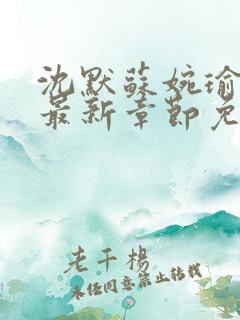 沈默蘇婉瑜
最新章節免
老千楊
未經同意禁止轉載